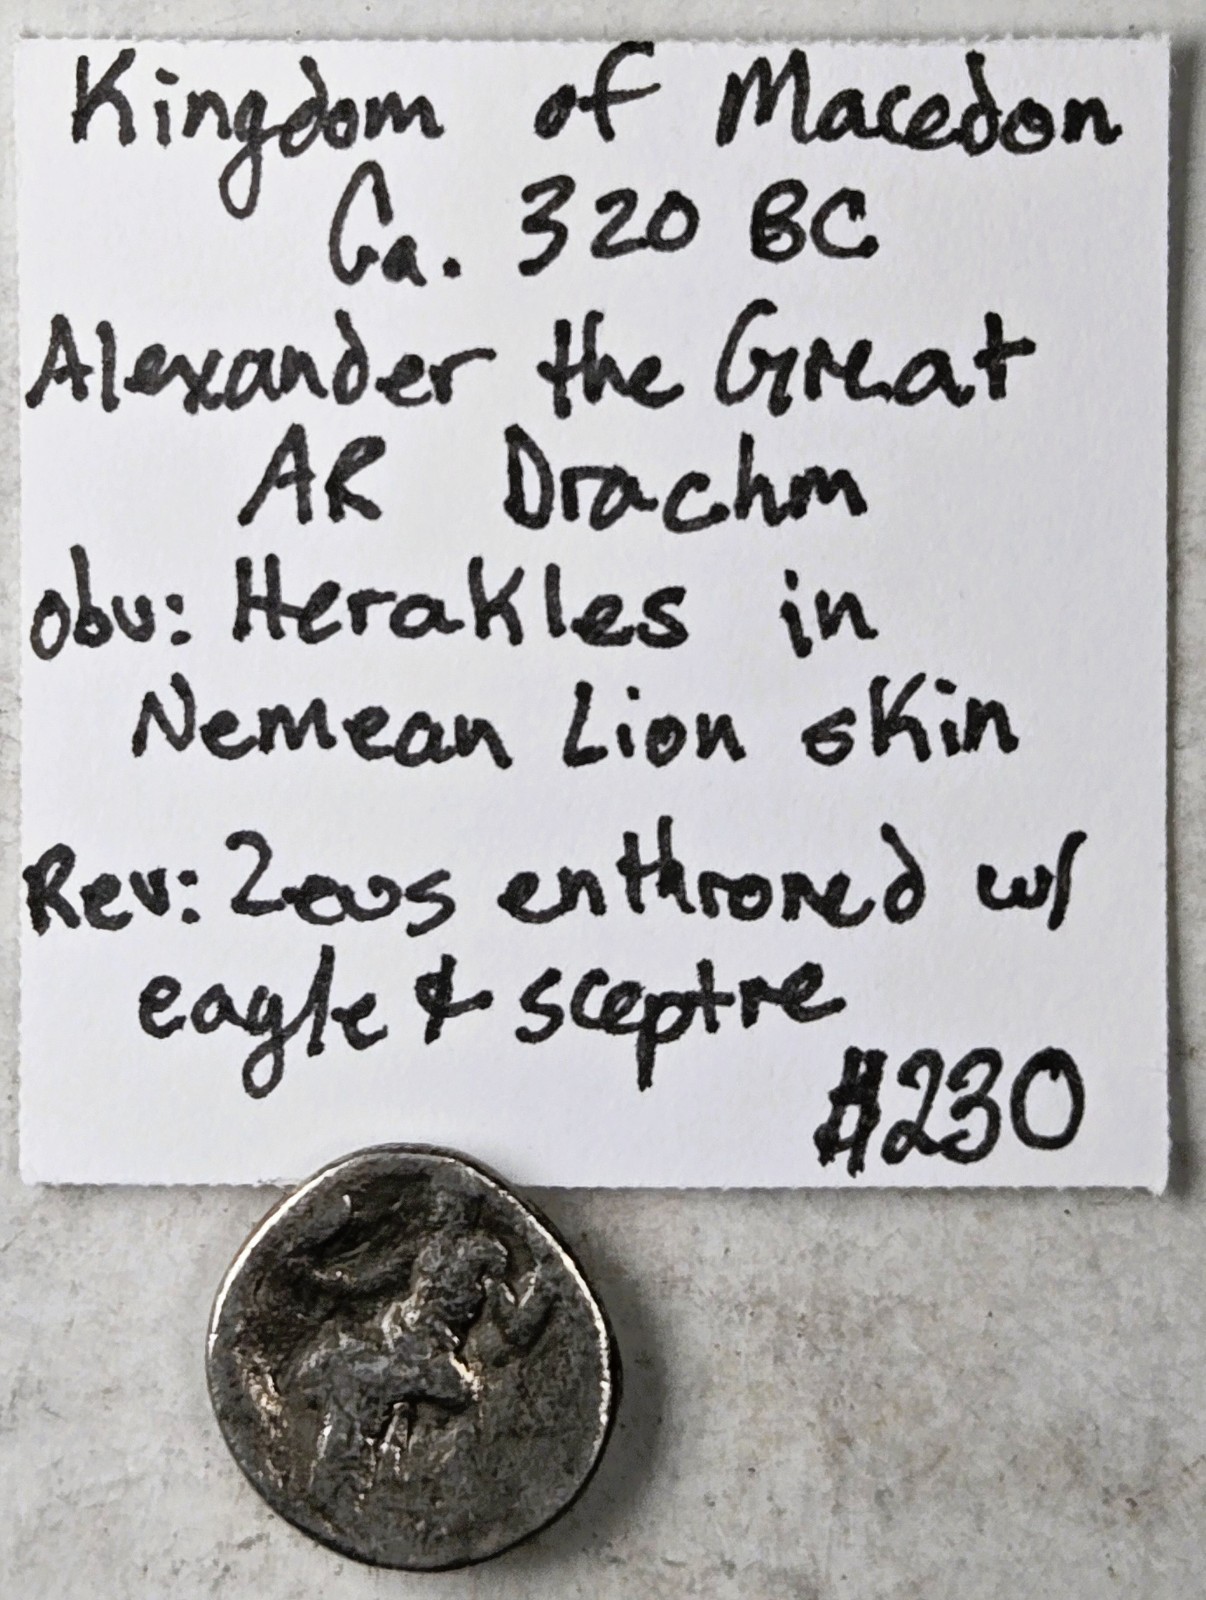 Kingdom of Macedon
Ca. 320 BC
Alexander the Great
AR Drachm
obv: Herakles in
Nemean Lion skin
Rev: Zeus enthroned w/
eagle & sceptre
#230